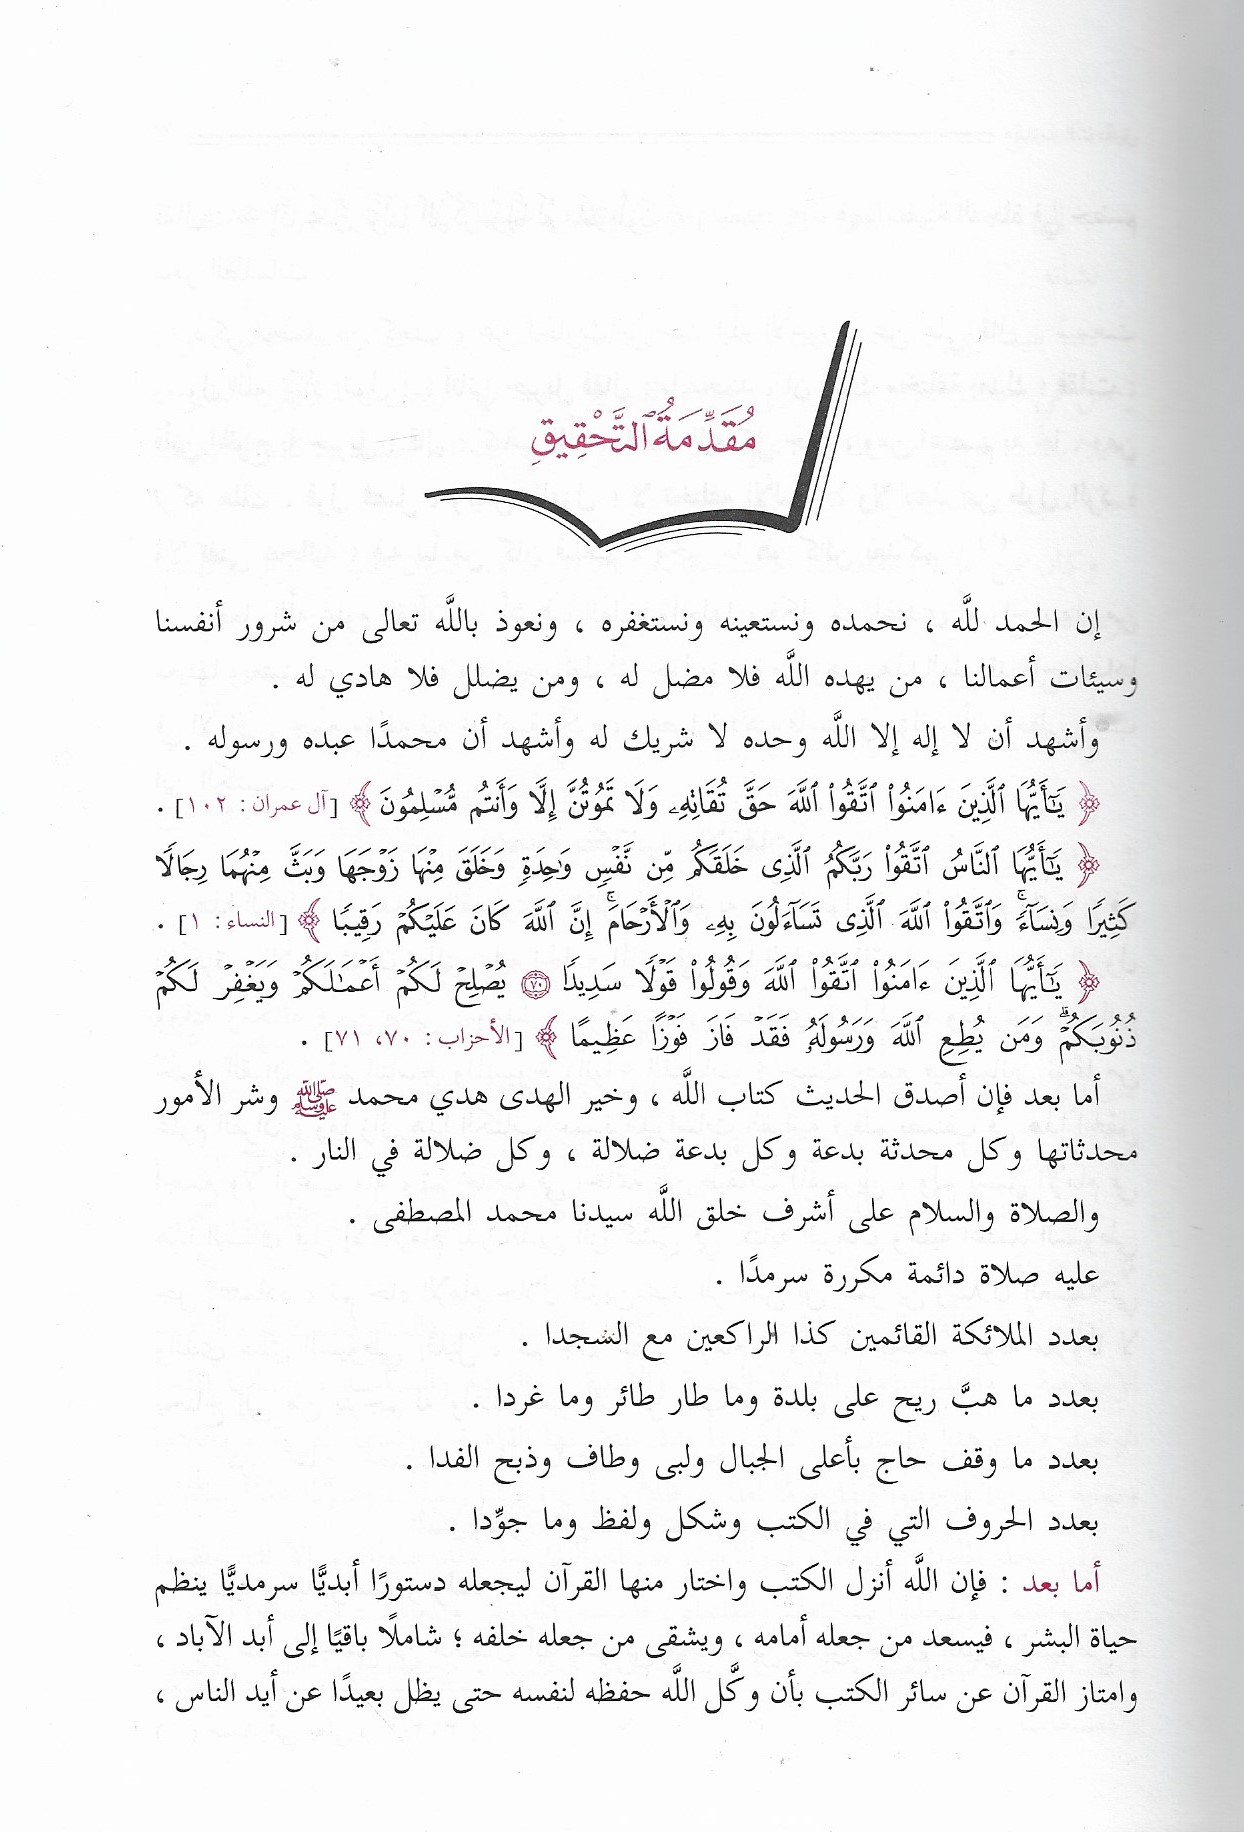 مُقَدِّمَةُ التَّحْقِيقِ
إن الحمد للَّه ، نحمده ونستعينه ونستغفره ، ونعوذ باللَّه تعالى من شرور أنفسنا
وسيئات أعمالنا ، من يهده اللَّه فلا مضل له ، ومن يضلل فلا هادي له .
وأشهد أن لا إله إلا اللَّه وحده لا شريك له وأشهد أن محمدًا عبده ورسوله .
﴿ يَٰٓأَيُّهَا ٱلَّذِينَ ءَامَنُوا۟ ٱتَّقُوا۟ ٱللَّهَ حَقَّ تُقَاتِهِۦ وَلَا تَمُوتُنَّ إِلَّا وَأَنتُم مُّسْلِمُونَ ﴾ [آل عمران : ١٠٢] .
﴿ يَٰٓأَيُّهَا ٱلنَّاسُ ٱتَّقُوا۟ رَبَّكُمُ ٱلَّذِى خَلَقَكُم مِّن نَّفْسٍ وَٰحِدَةٍ وَخَلَقَ مِنْهَا زَوْجَهَا وَبَثَّ مِنْهُمَا رِجَالًا
كَثِيرًا وَنِسَآءً ۚ وَٱتَّقُوا۟ ٱللَّهَ ٱلَّذِى تَسَآءَلُونَ بِهِۦ وَٱلْأَرْحَامَ ۚ إِنَّ ٱللَّهَ كَانَ عَلَيْكُمْ رَقِيبًا ﴾ [النساء : ١] .
﴿ يَٰٓأَيُّهَا ٱلَّذِينَ ءَامَنُوا۟ ٱتَّقُوا۟ ٱللَّهَ وَقُولُوا۟ قَوْلًا سَدِيدًا ۝٧٠ يُصْلِحْ لَكُمْ أَعْمَٰلَكُمْ وَيَغْفِرْ لَكُمْ
ذُنُوبَكُمْ ۗ وَمَن يُطِعِ ٱللَّهَ وَرَسُولَهُۥ فَقَدْ فَازَ فَوْزًا عَظِيمًا ﴾ [الأحزاب : ٧٠، ٧١] .
أما بعد فإن أصدق الحديث كتاب اللَّه ، وخير الهدى هدي محمد ﷺ وشر الأمور
محدثاتها وكل محدثة بدعة وكل بدعة ضلالة ، وكل ضلالة في النار .
والصلاة والسلام على أشرف خلق اللَّه سيدنا محمد المصطفى .
عليه صلاة دائمة مكررة سرمدًا .
بعدد الملائكة القائمين كذا الراكعين مع السجدا .
بعدد ما هبَّ ريح على بلدة وما طار طائر وما غردا .
بعدد ما وقف حاج بأعلى الجبال ولبى وطاف وذبح الفدا .
بعدد الحروف التي في الكتب وشكل ولفظ وما جوِّدا .
أما بعد : فإن اللَّه أنزل الكتب واختار منها القرآن ليجعله دستورًا أبديًّا سرمديًّا ينظم
حياة البشر ، فيسعد من جعله أمامه ، ويشقى من جعله خلفه ؛ شاملًا باقيًا إلى أبد الآباد ،
وامتاز القرآن عن سائر الكتب بأن وكَّل اللَّه حفظه لنفسه حتى يظل بعيدًا عن أيد الناس ،